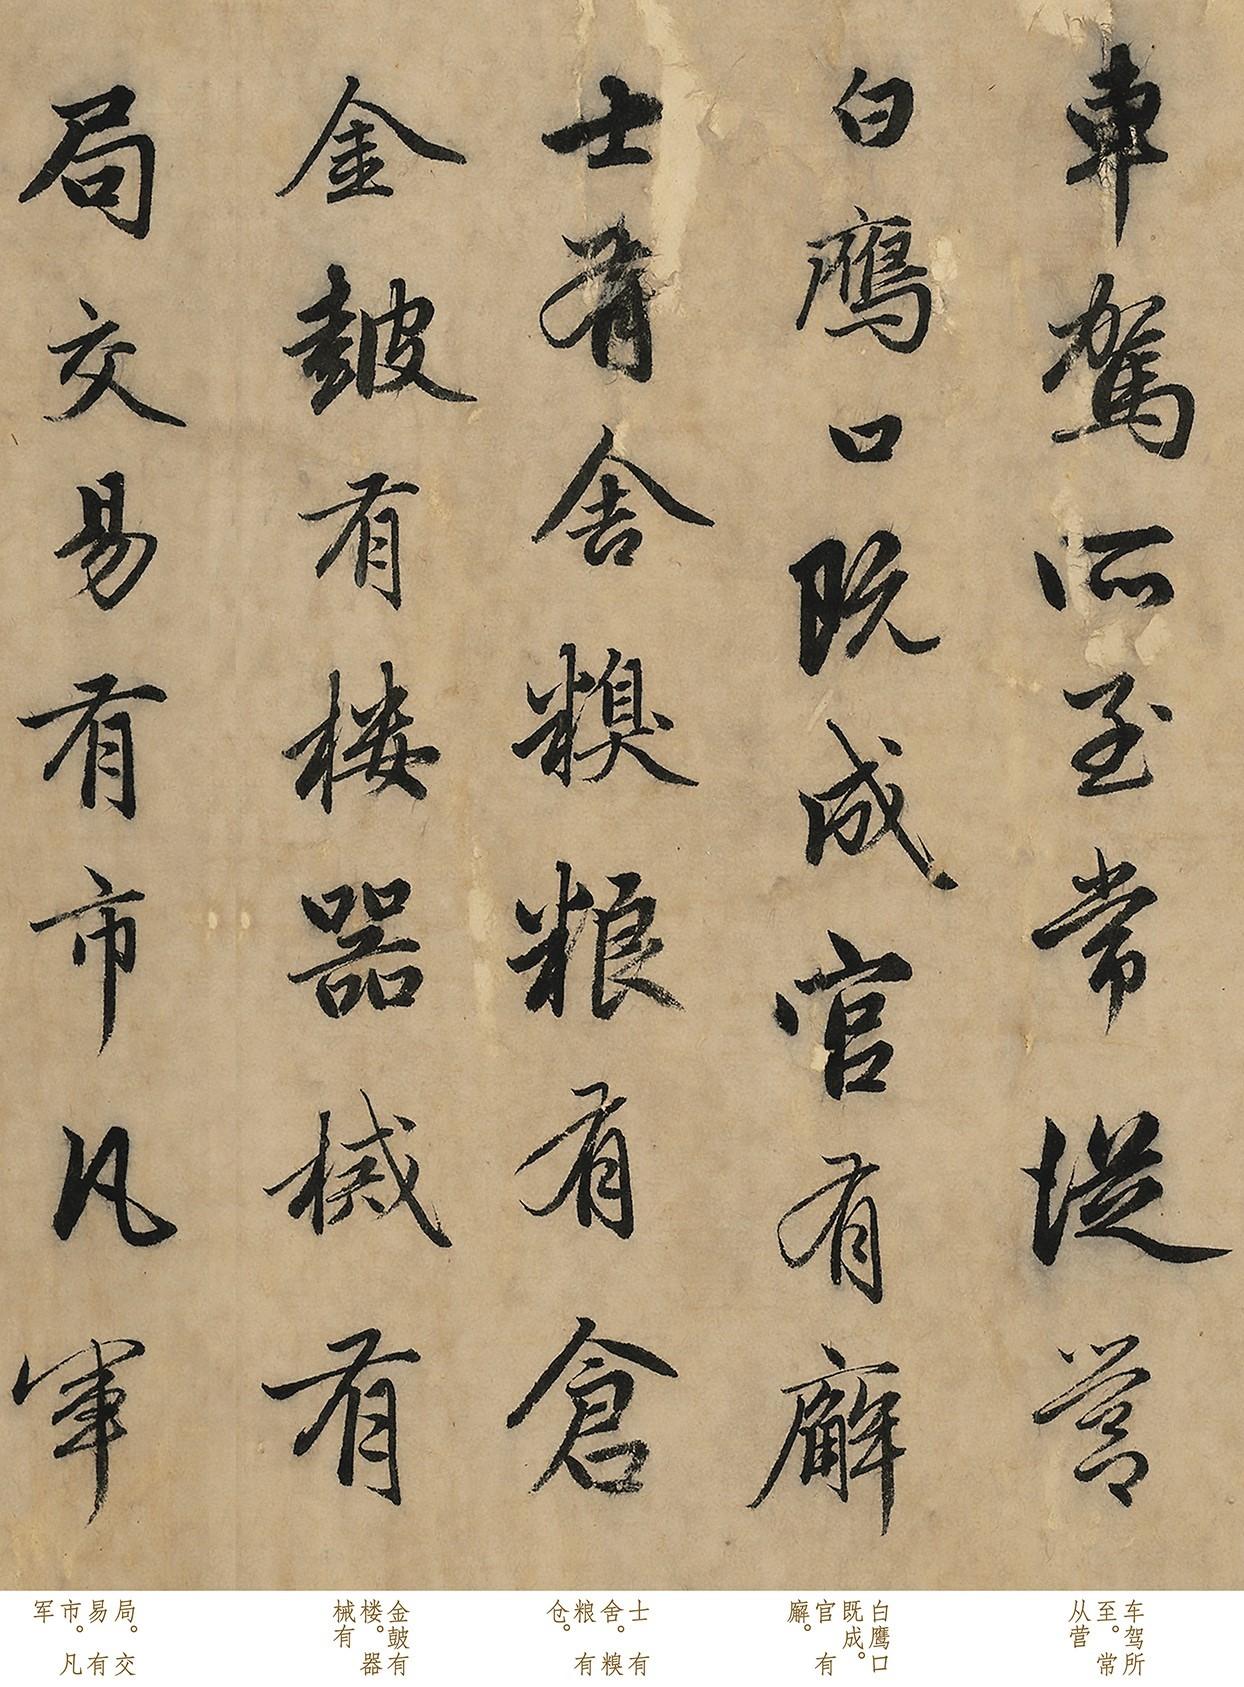 車駕所至常從營
白鷹口既成官有廨
士有舍糗粮有倉
金皷有楼器械有
局交易有市凡軍
车驾所
至。常
从营
白鹰口
既成。
官有
廨。
士有
舍。糗
粮有
仓。
金皷有
楼。器
械有
局。交
易有
市。凡
军